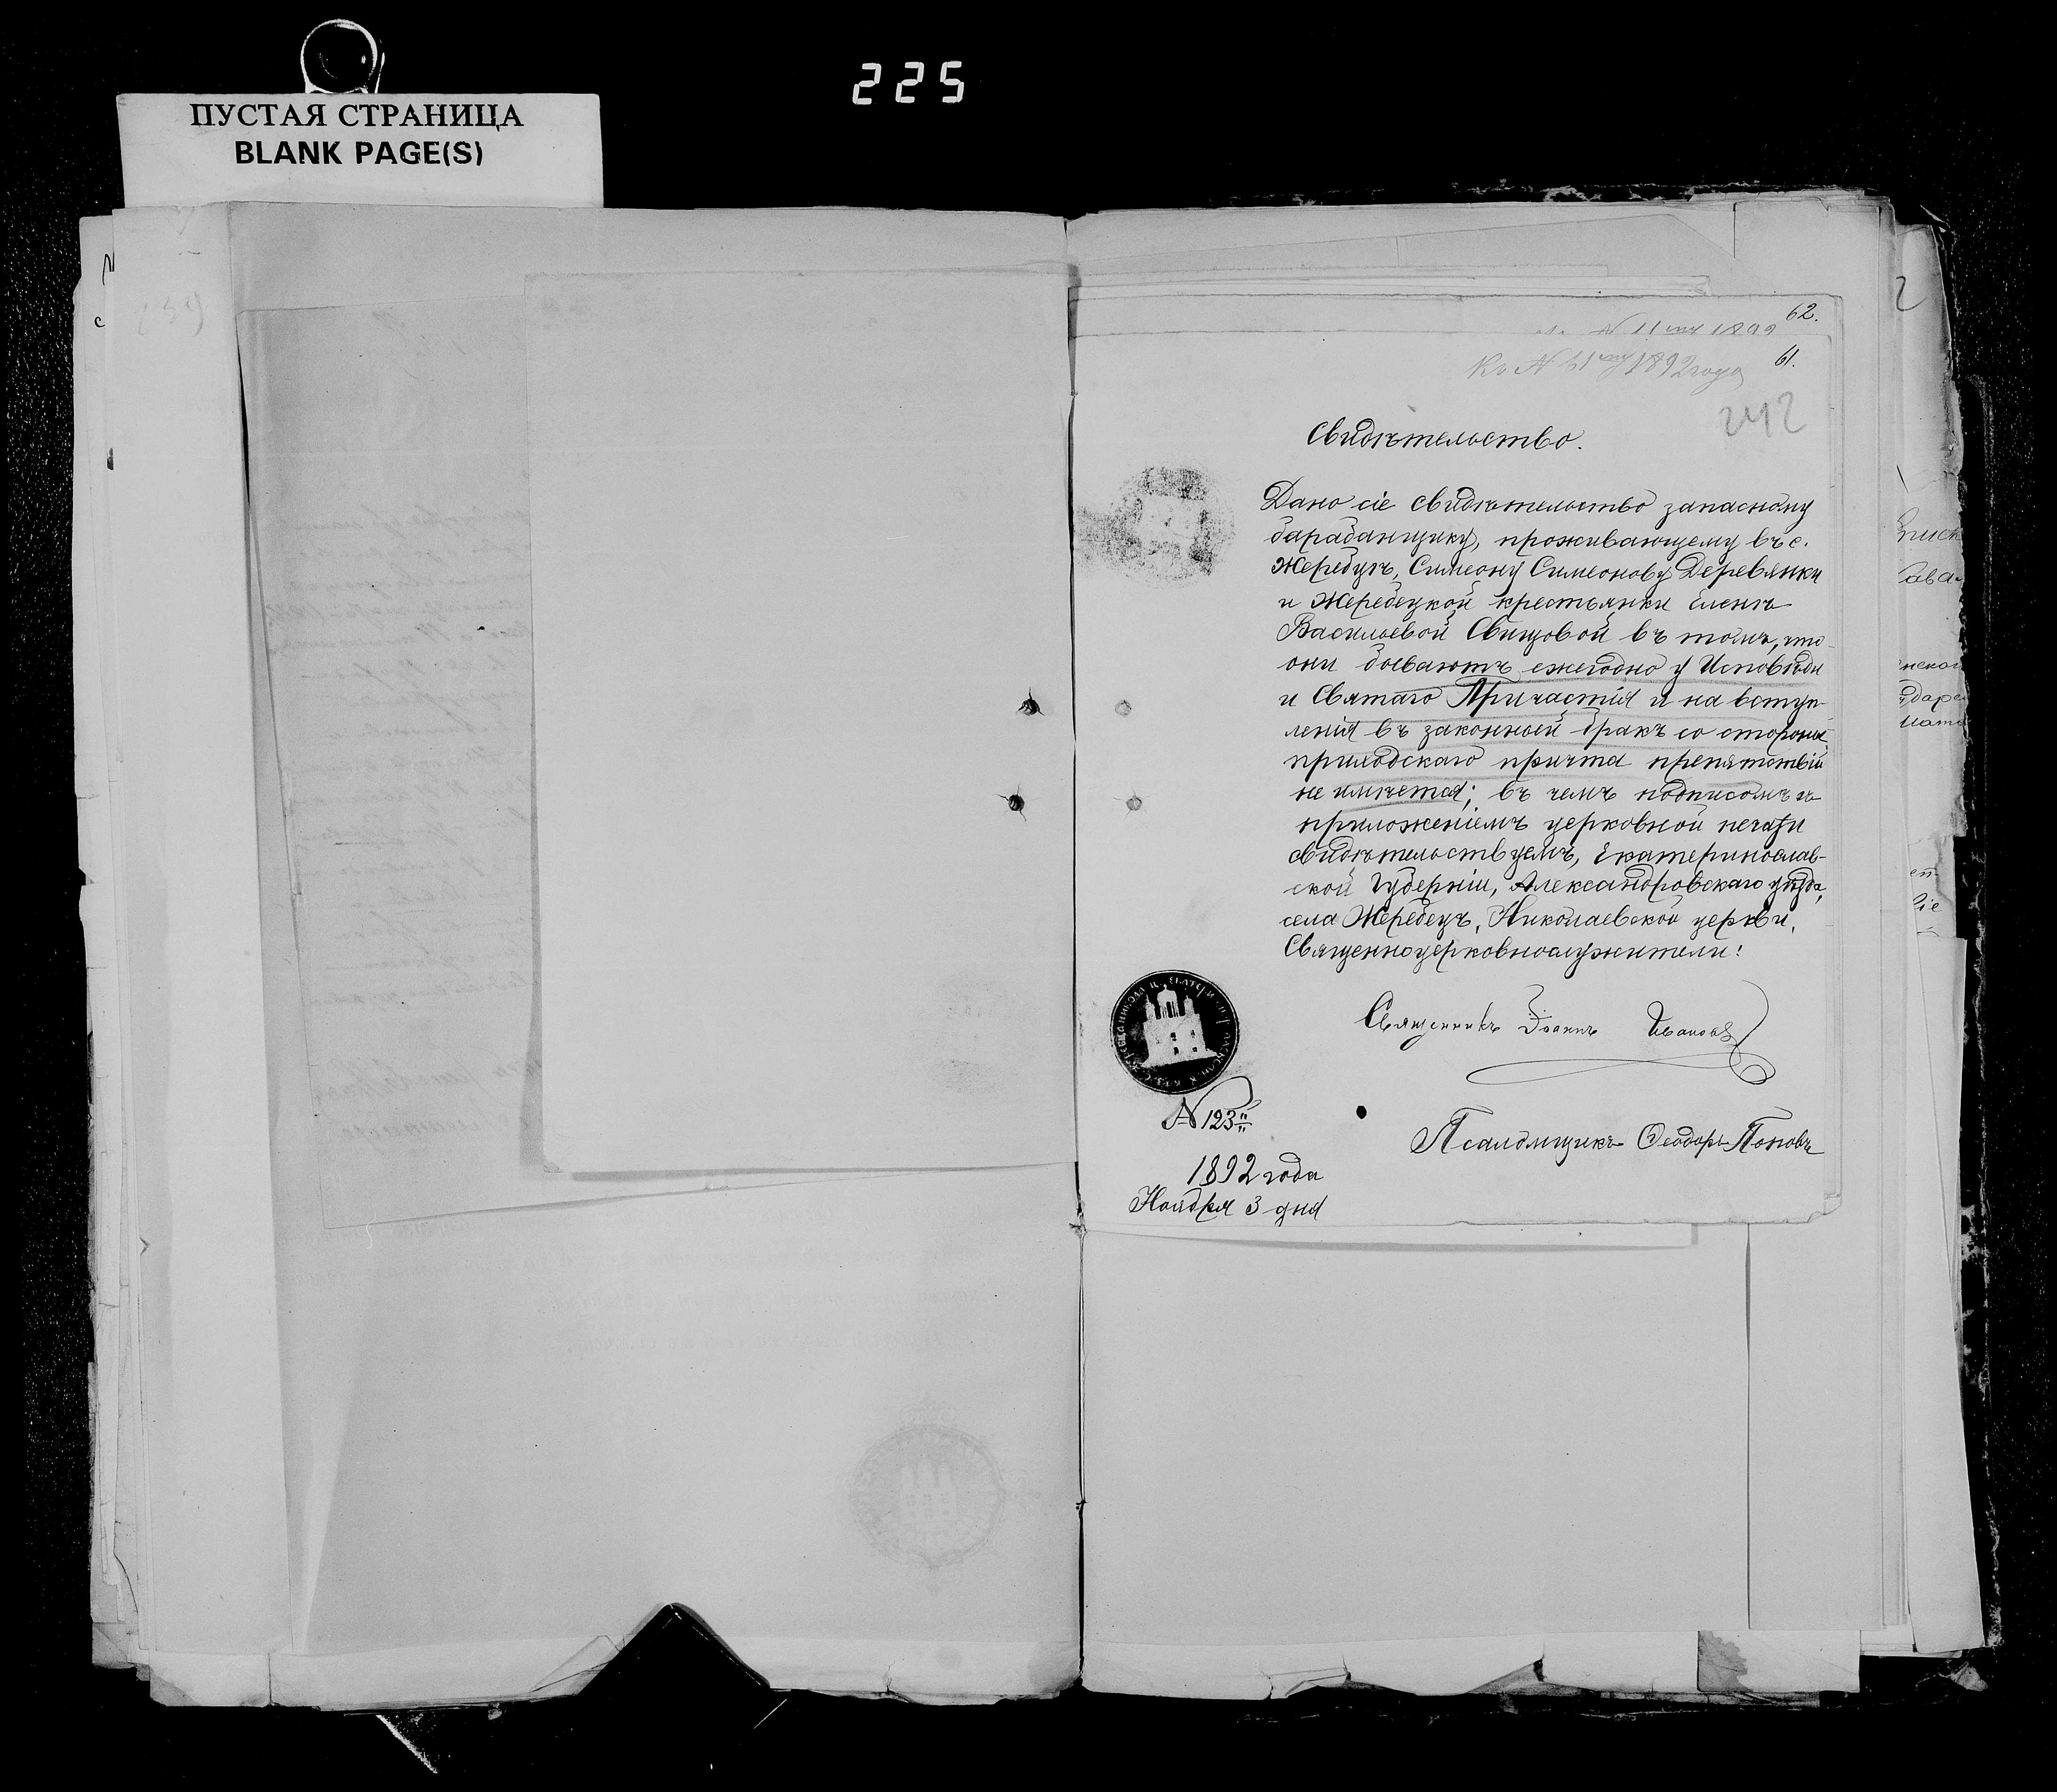 225
ПУСТАЯ СТРАНИЦА
BLANK PAGE(S)
62.
61.
Къ № 61 му 1892 года
242
Свидѣтельство.
Дано сіе свидѣтельство запасному
барабанщику, проживающему въ с.
Жеребцѣ, Симеону Симеонову Деревянки
и Жеребецкой крестьянки Еленѣ
Васильевой Свищовой въ томъ, что
они бываютъ ежегодно у Исповѣди
и Святаго Причастія и на вступ-
ленія въ законный бракъ со стороны
приходскаго причта препятствій
не имѣется; въ чемъ подписомъ и
приложеніемъ церковной печати
свидѣтельствуемъ, Екатеринослав-
ской Губерніи, Александровскаго уѣзда,
села Жеребецъ, Николаевской церкви,
Священноцерковнослужители:
Священникъ Іоаннъ Ивановъ
№ 123
Псаломщикъ Ѳеодоръ Поповъ
1892 года
Ноября 3 дня